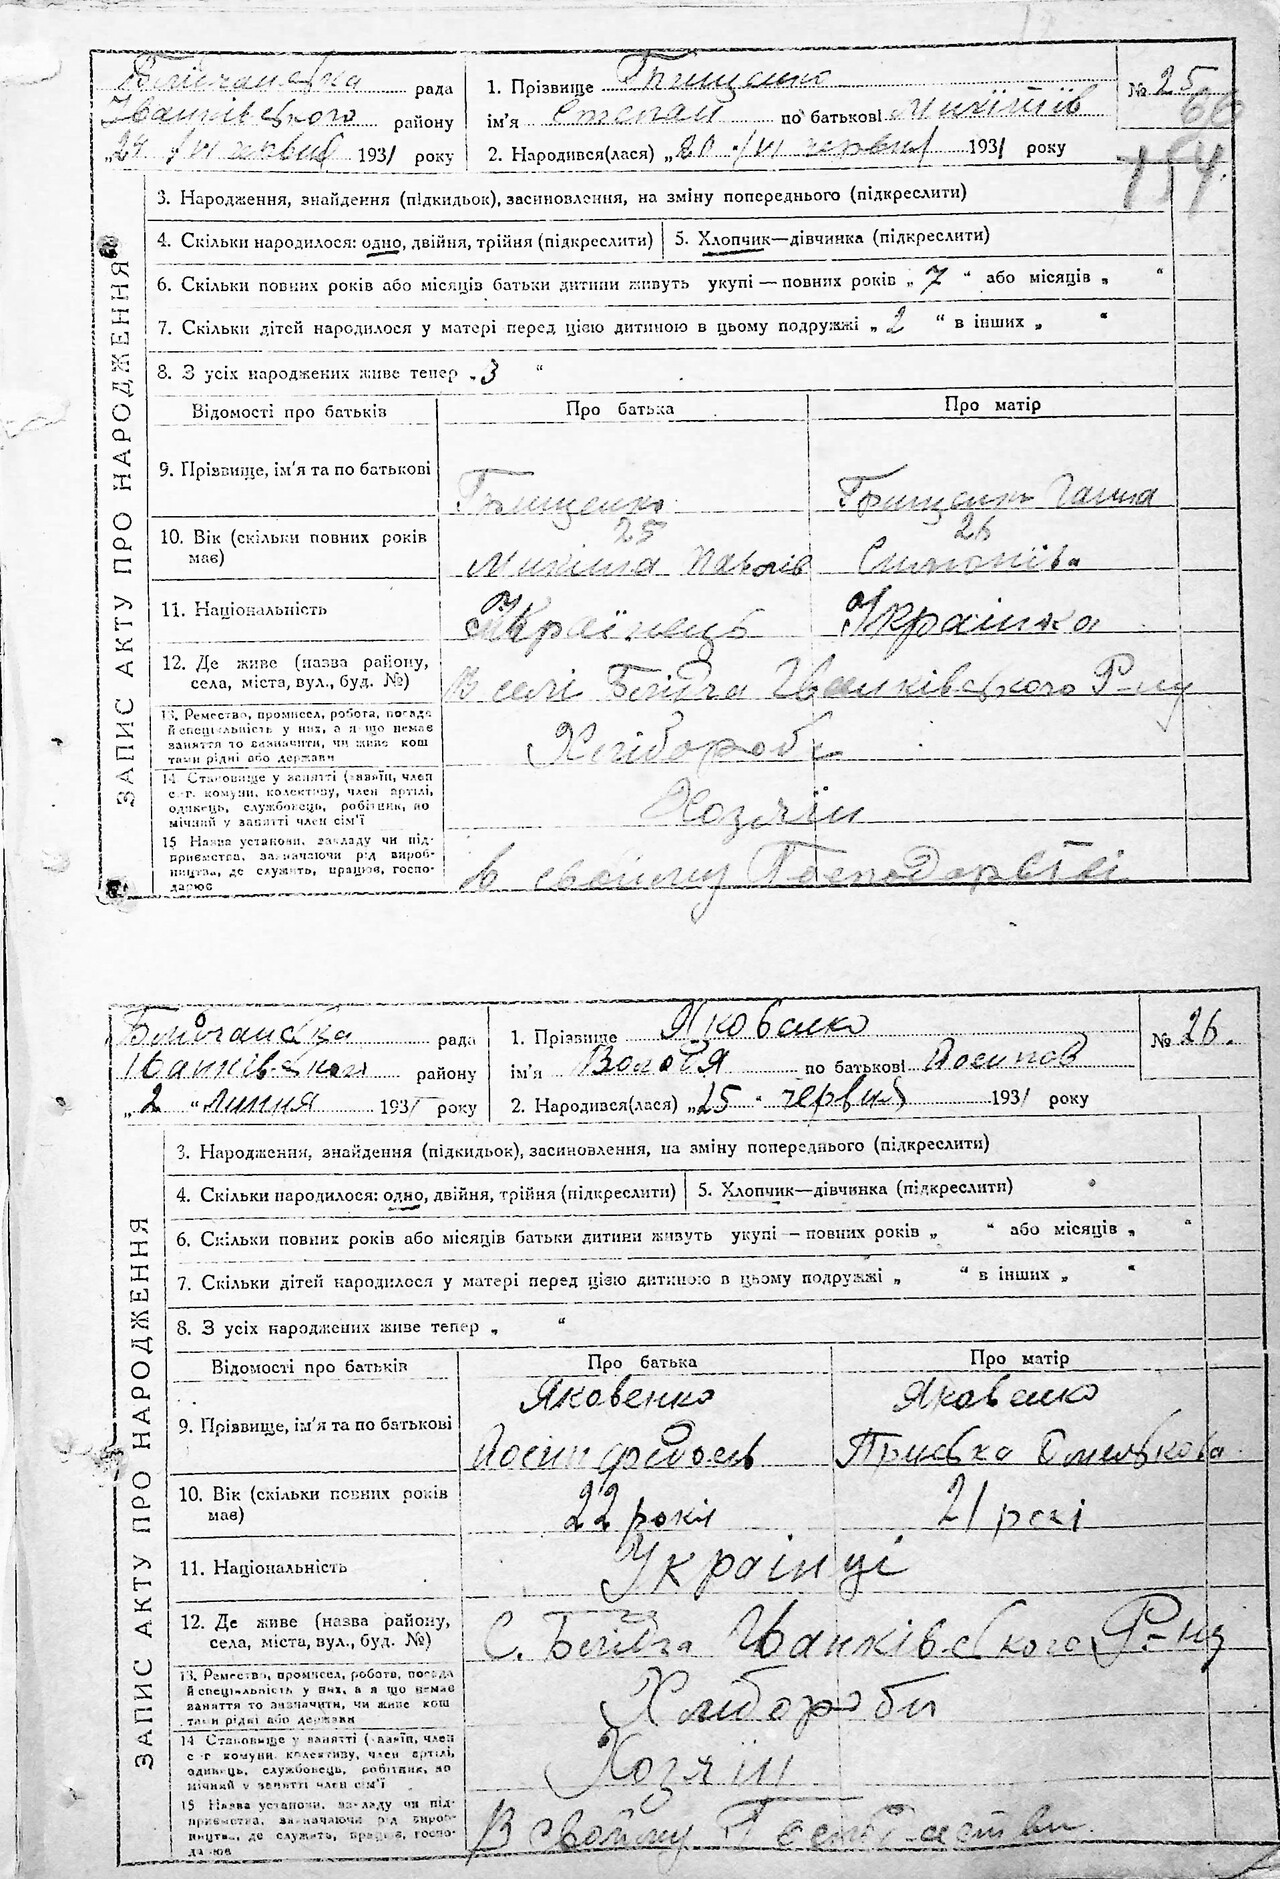 ЗАПИС АКТУ ПРО НАРОДЖЕННЯ
рада
Іванківського району
"24 /VI червня 1931 року
1. Прізвище Грищенко
ім'я Степан по батькові Микитів
2. Народився(лася) „20 /VI червня 1931 року
№ 25
66
154
3. Народження, знайдення (підкидьок), засиновлення, на зміну попереднього (підкреслити)
4. Скільки народилося: одно, двійня, трійня (підкреслити)
5. Хлопчик—дівчинка (підкреслити)
6. Скільки повних років або місяців батьки дитини живуть укупі — повних років „ 7 “ або місяців „ “
7. Скільки дітей народилося у матері перед цією дитиною в цьому подружжі „ 2 “ в інших „ “
8. З усіх народжених живе тепер „ 3 “
Відомості про батьків Про батька Про матір
9. Прізвище, ім'я та по батькові
Грищенко Грищенко Ганна
10. Вік (скільки повних років має)
25 26
Микита Павлів
11. Національність
Українець Українка
12. Де живе (назва району, села, міста, вул., буд. №)
В селі Іванківського Р-ну
13. Ремество, промисел, робота, посада
й спеціяльність у них, а якщо немає
заняття то зазначити, чи живе кош
тами рідні або держави
Хлібороби
14 Становище у занятті (хазяїн, член
с.-г. комуни, колективу, член артілі,
одинець, службовець, робітник, по
мічний у занятті член сім'ї
Хозяїн
15 Назва установи, закладу чи під-
приємства, зазначаючи рід вироб-
ництва, де служить, працює, госпо-
дарює
в свойму Господарстві
ЗАПИС АКТУ ПРО НАРОДЖЕННЯ
рада
району
„ 2 “ липня 1931 року
1. Прізвище Яковенко
ім'я Володя по батькові Йосипов
2. Народився(лася) „25 “ червня 1931 року
№ 26.
3. Народження, знайдення (підкидьок), засиновлення, на зміну попереднього (підкреслити)
4. Скільки народилося: одно, двійня, трійня (підкреслити)
5. Хлопчик—дівчинка (підкреслити)
6. Скільки повних років або місяців батьки дитини живуть укупі — повних років „ “ або місяців „ “
7. Скільки дітей народилося у матері перед цією дитиною в цьому подружжі „ “ в інших „ “
8. З усіх народжених живе тепер „ “
Відомості про батьків Про батька Про матір
Яковенко Яковенко
9. Прізвище, ім'я та по батькові
Йосип Приська
10. Вік (скільки повних років має)
22 років 21 рокі
11. Національність
Українці
12. Де живе (назва району, села, міста, вул., буд. №)
С. Іванківського Р-ну
13. Ремество, промисел, робота, посада
й спеціяльність у них, а якщо немає
заняття то зазначити, чи живе кош
тами рідні або держави
Хлібороби
14 Становище у занятті (хазяїн, член
с.-г. комуни, колективу, член артілі,
одинець, службовець, робітник, по
мічний у занятті член сім'ї
Хозяїн
15 Назва установи, закладу чи під-
приємства, зазначаючи рід вироб-
ництва, де служить, працює, госпо-
дарює
В свойму